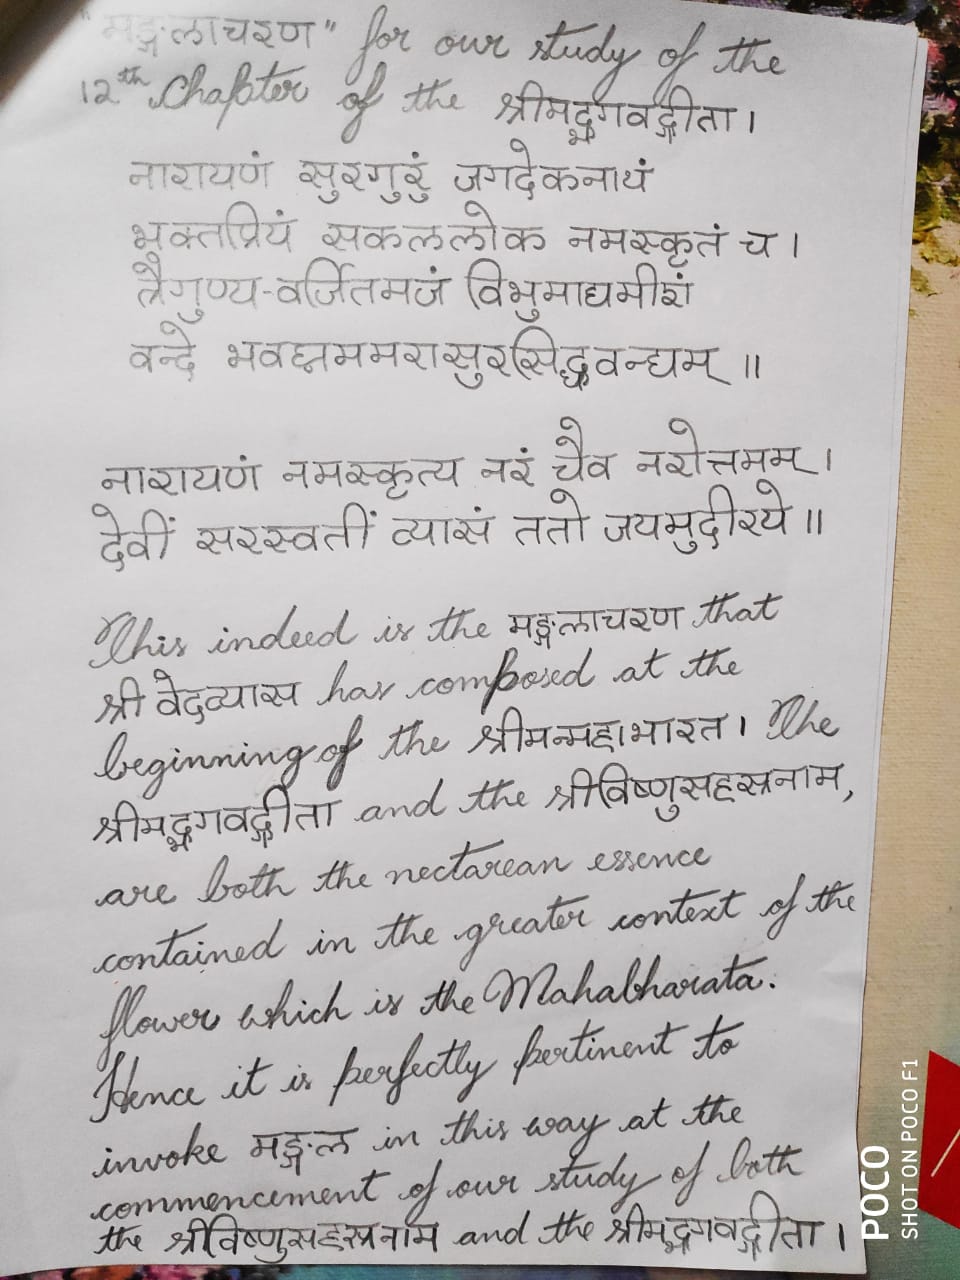 "मङ्गलाचरण" for our study of the
12th Chapter of the श्रीमद्भगवद्गीता।
नारायणं सुरगुरुं जगदेकनाथं
भक्तप्रियं सकललोक नमस्कृतं च।
त्रैगुण्य-वर्जितमजं विभुमाद्यमीशं
वन्दे भवघ्नममरासुरसिद्धवन्द्यम्॥
नारायणं नमस्कृत्य नरं चैव नरोत्तमम्।
देवीं सरस्वतीं व्यासं ततो जयमुदीरये॥
This indeed is the मङ्गलाचरण that
श्री वेदव्यास has composed at the
beginning of the श्रीमन्महाभारत। The
श्रीमद्भगवद्गीता and the श्रीविष्णुसहस्रनाम,
are both the nectarean essence
contained in the greater context of the
flower which is the Mahabharata.
Hence it is perfectly pertinent to
invoke मङ्गल in this way at the
commencement of our study of both
the श्रीविष्णुसहस्रनाम and the श्रीमद्भगवद्गीता।
POCO
SHOT ON POCO F1